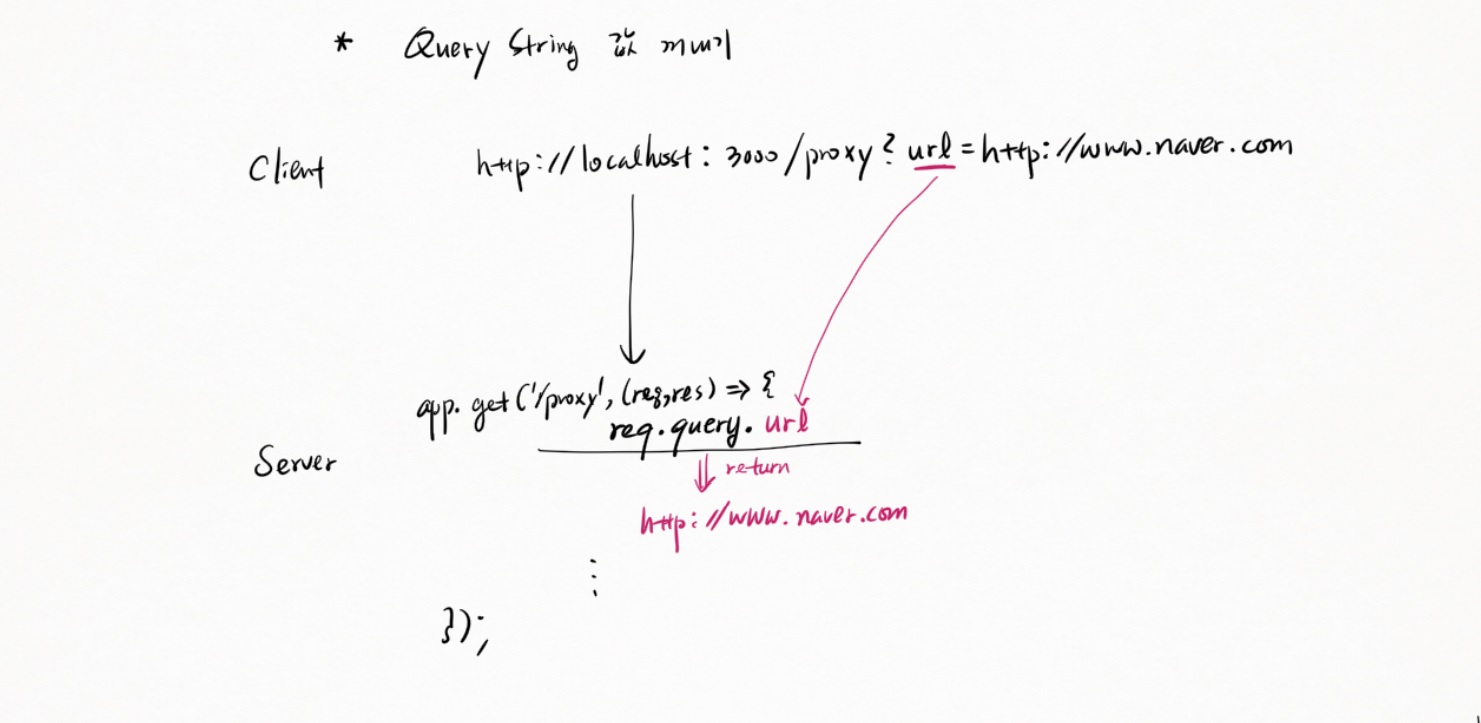 * Query String 값 꺼내기
Client http://localhost:3000/proxy?url=http://www.naver.com
app.get('/proxy', (req,res) => {
req.query.url
Server
return
http://www.naver.com
⋮
});